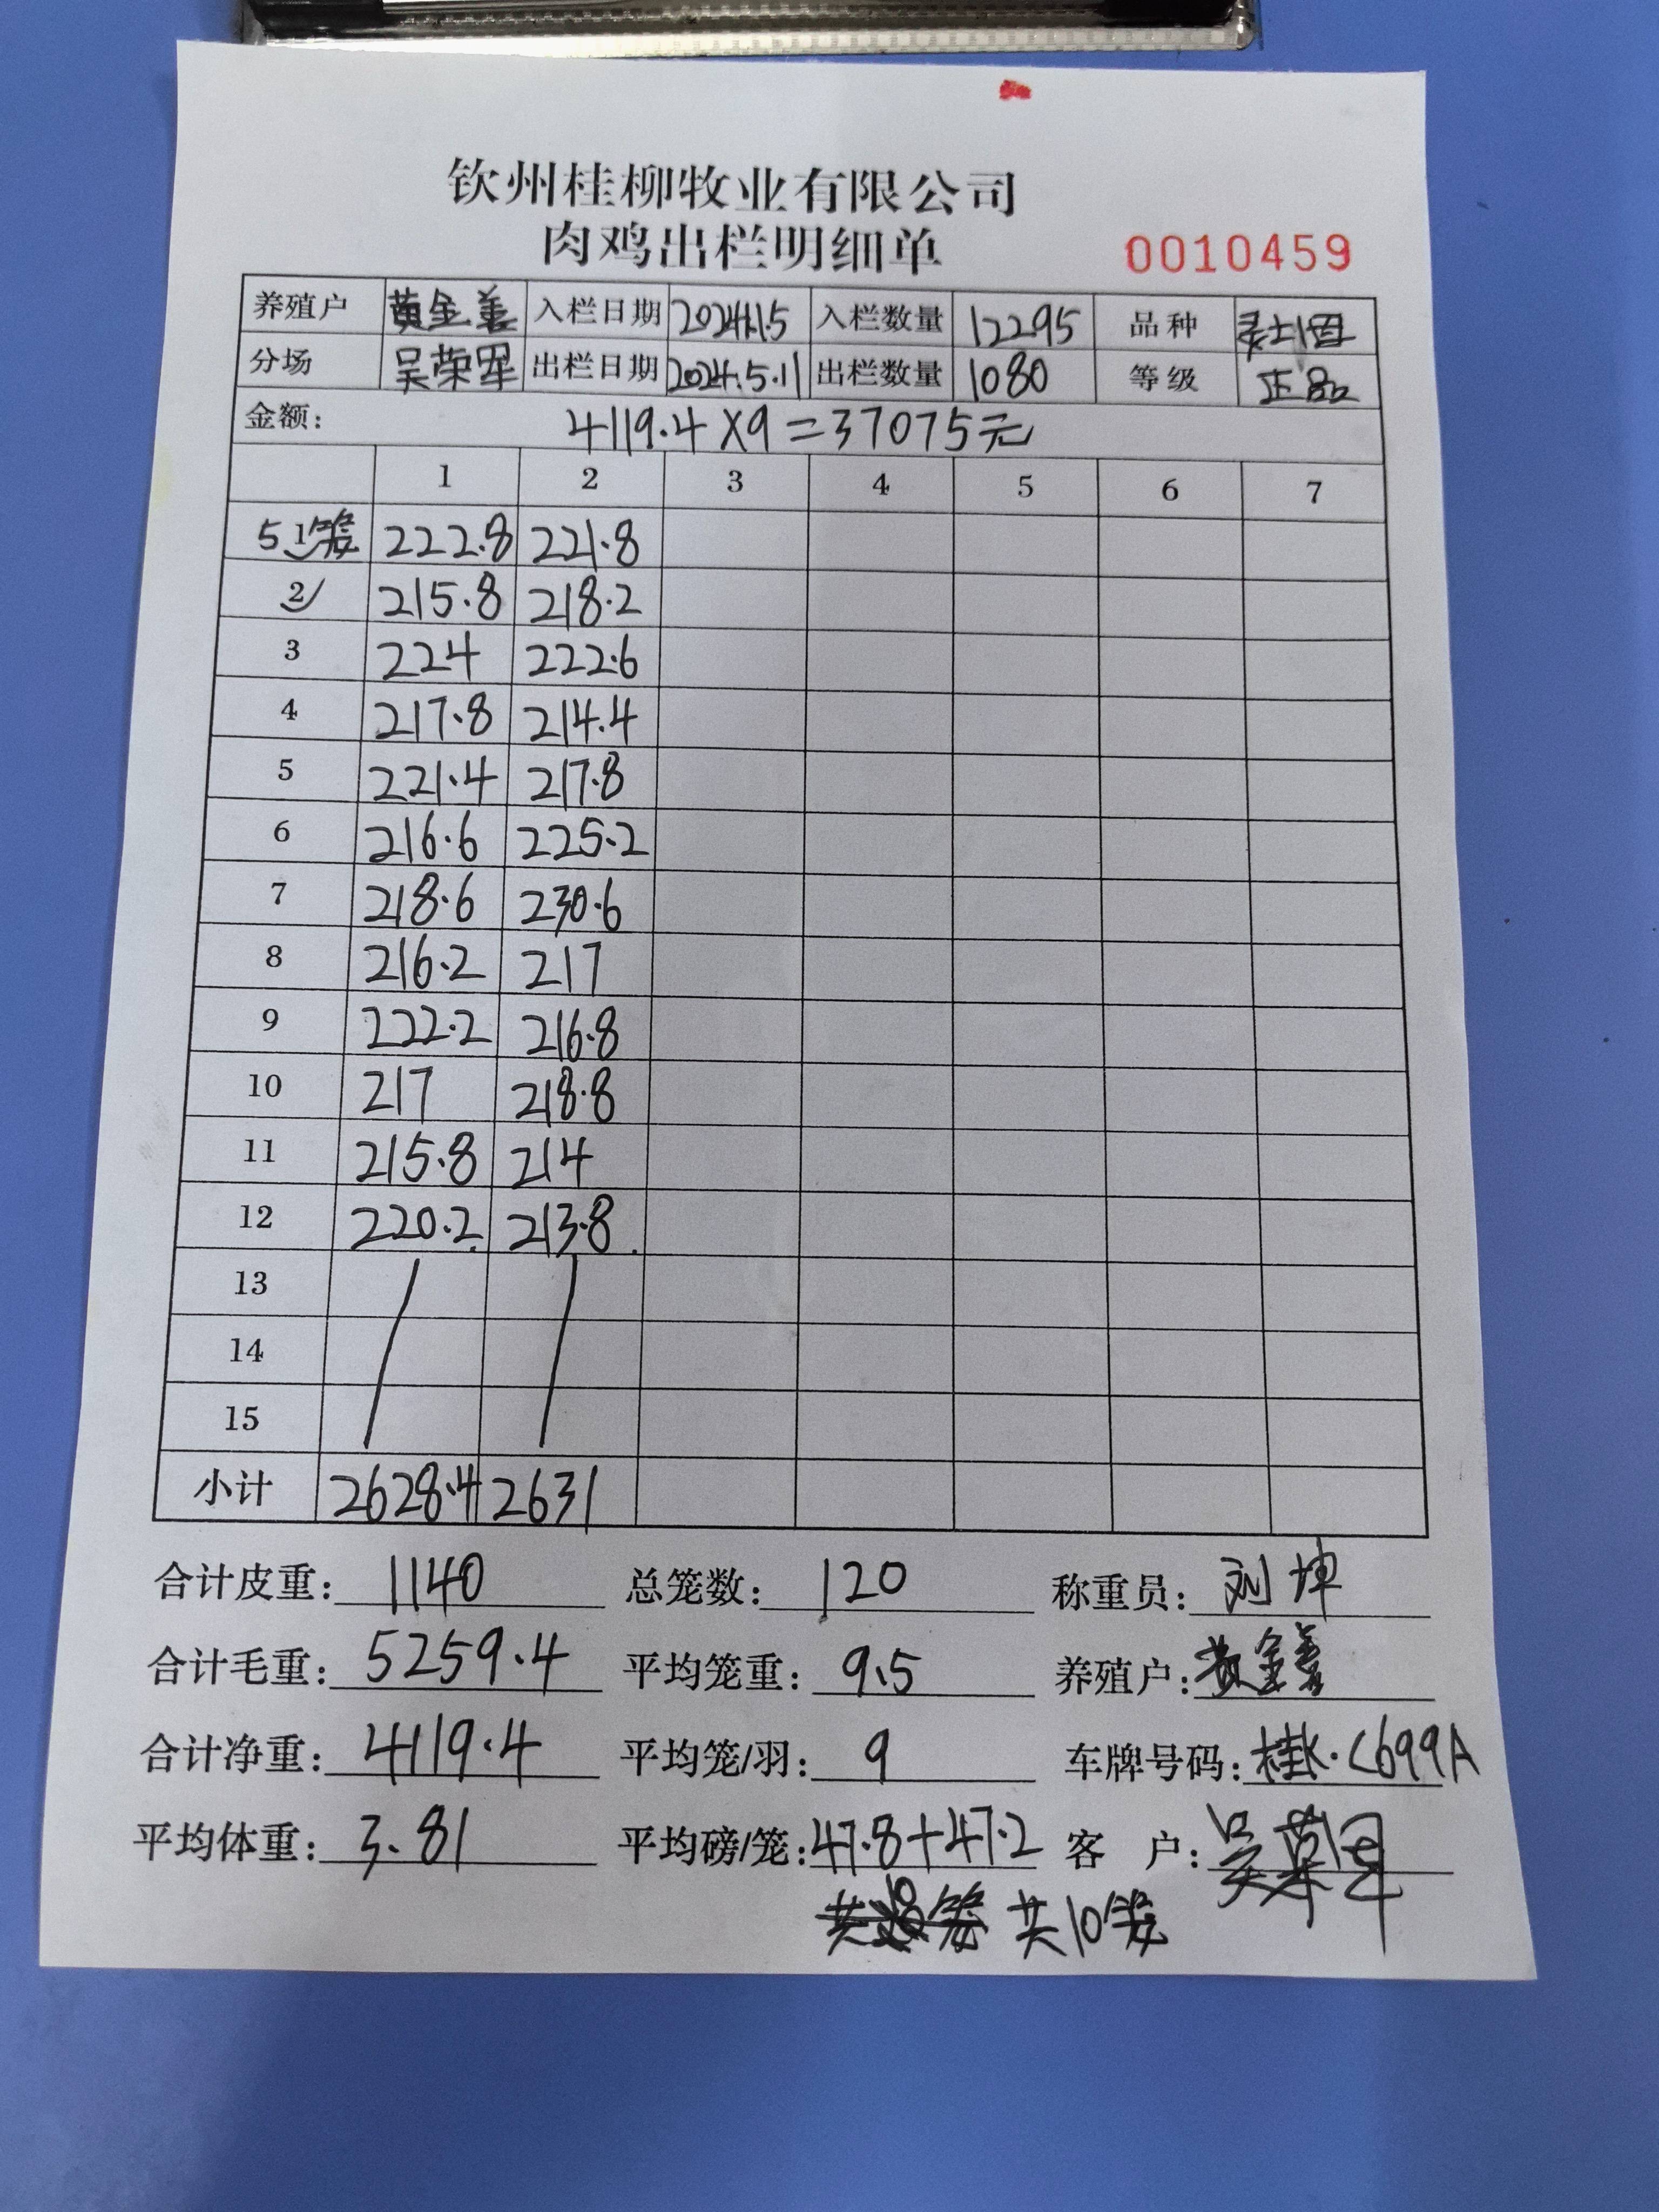 钦州桂柳牧业有限公司
肉鸡出栏明细单
0010459
养殖户 黄金善 入栏日期 2024.1.5 入栏数量 12295 品种
分场 吴荣军 出栏日期 2024.5.11 出栏数量 1080 等级 正品
金额: 4119.4×9=37075元
1 2 3 4 5 6 7
5 1 笼 222.8 221.8
2 215.8 218.2
3 224 222.6
4 217.8 214.4
5 221.4 217.8
6 216.6 225.2
7 218.6 230.6
8 216.2 217
9 222.2 216.8
10 217 218.8
11 215.8 214
12 220.2 213.8
13
14
15
小计 2628.4 2631
合计皮重: 1140 总笼数: 120 称重员: 刘坤
合计毛重: 5259.4 平均笼重: 9.5 养殖户: 黄金善
合计净重: 4119.4 平均笼/羽: 9 车牌号码: 桂K·C699A
平均体重: 3.81 平均磅/笼: 47.8+47.2 客 户: 吴荣军
共10笼